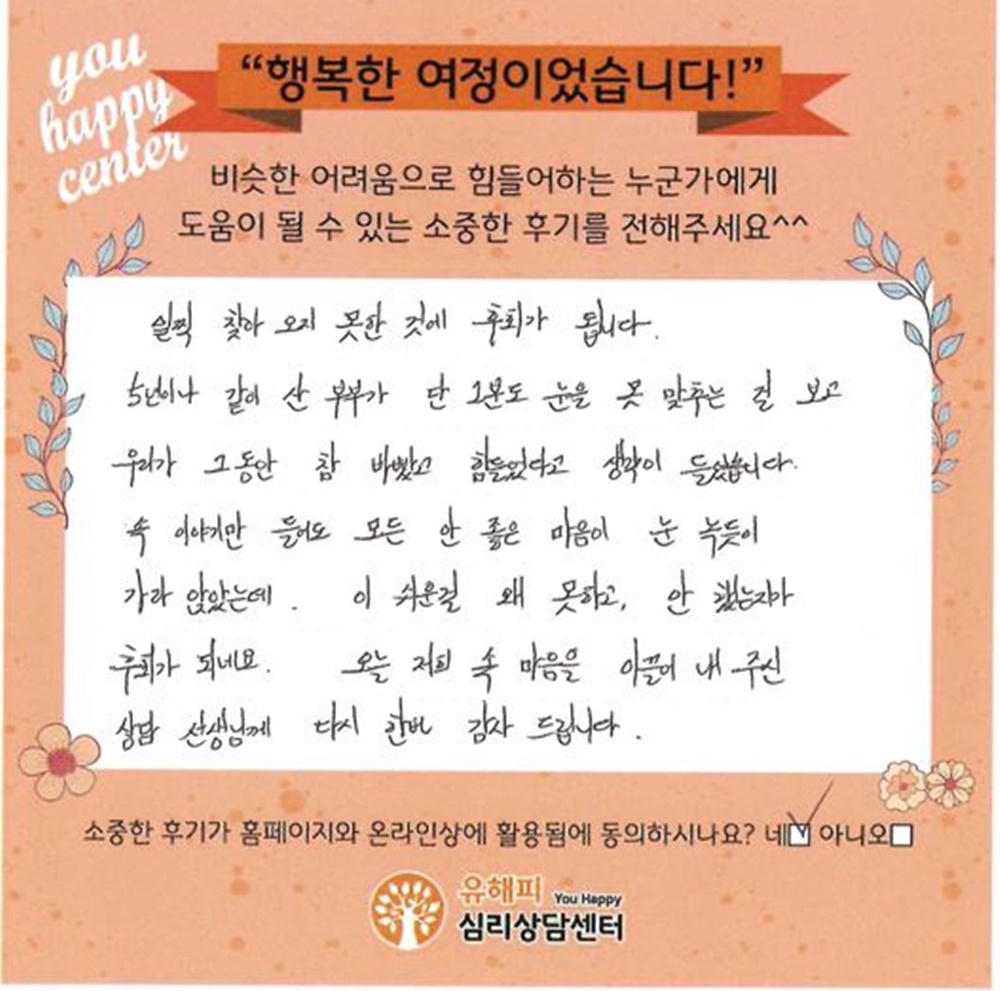 you
happy
center
“행복한 여정이었습니다!”
비슷한 어려움으로 힘들어하는 누군가에게
도움이 될 수 있는 소중한 후기를 전해주세요^^
일찍 찾아 오지 못한 것에 후회가 됩니다.
5년이나 같이 산 부부가 단 1분도 눈을 못 맞추는 걸 보고
우리가 그동안 참 바빴고 힘들었다고 생각이 들었습니다.
속 이야기만 들어도 모든 안 좋은 마음이 눈 녹듯이
가라 앉았는데. 이 쉬운걸 왜 못하고, 안 했는지가
후회가 되네요. 오늘 저희 속 마음을 이끌어 내 주신
상담 선생님께 다시 한번 감사 드립니다.
소중한 후기가 홈페이지와 온라인상에 활용됨에 동의하시나요? 네☑ 아니오☐
유해피 You Happy
심리상담센터